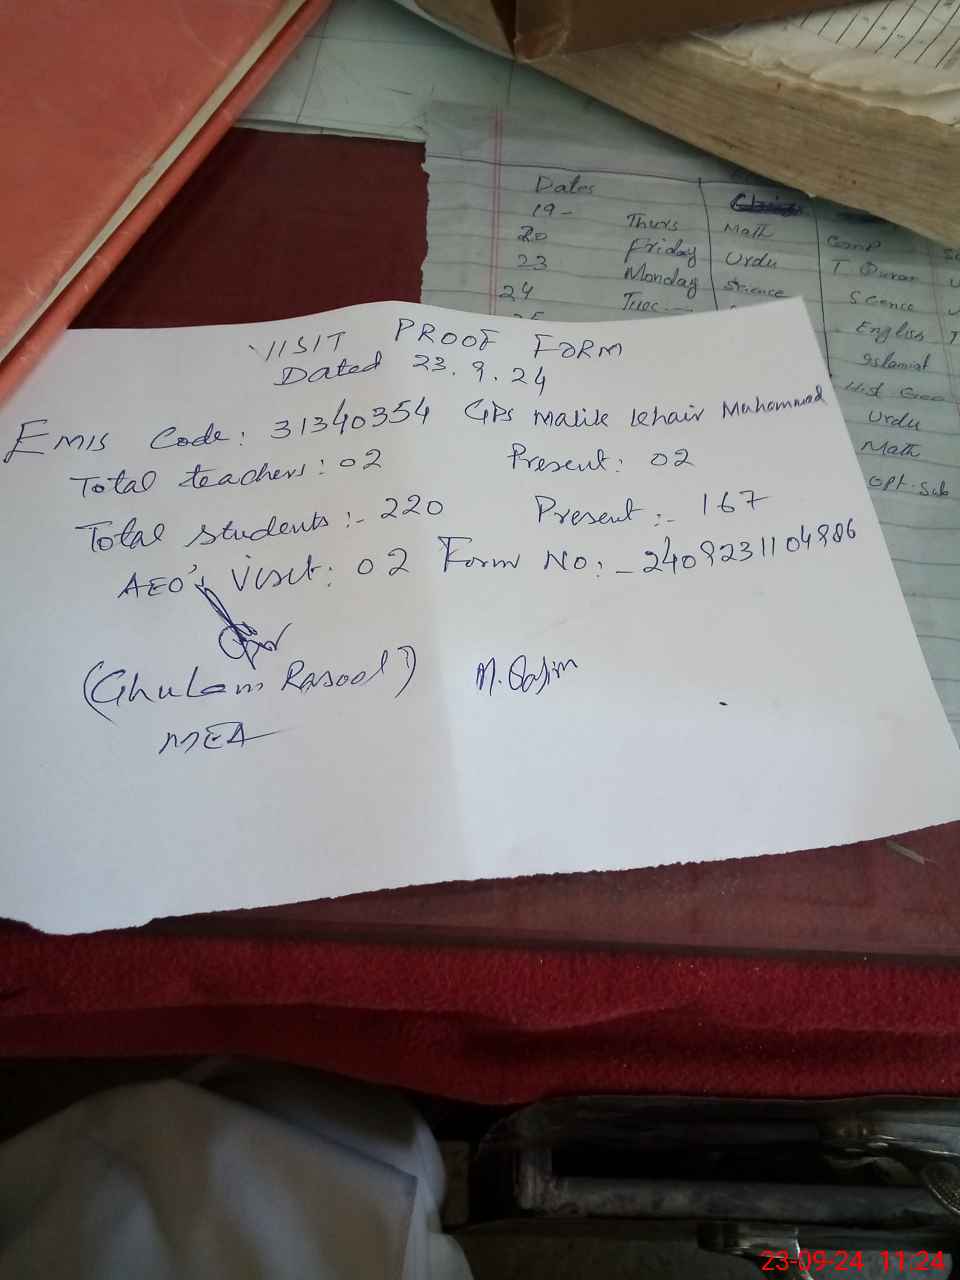 Dates
19- Thurs Math Comp
20 Friday Urdu T Quran
23 Monday Science Science
24 Tues English
Islamiat
Hist Geo
Urdu
Math
Opt. Sub
VISIT PROOF FORM
Dated 23.9.24
EMIS Code: 31340354 GPS Malik Khair Muhammad
Total teachers: 02 Present: 02
Total students:- 220 Present:- 167
AEO's Visit: 02 Form No:- 2409231104986
(Ghulam Rasool) M. Qasim
MEA
23-09-24 11:24